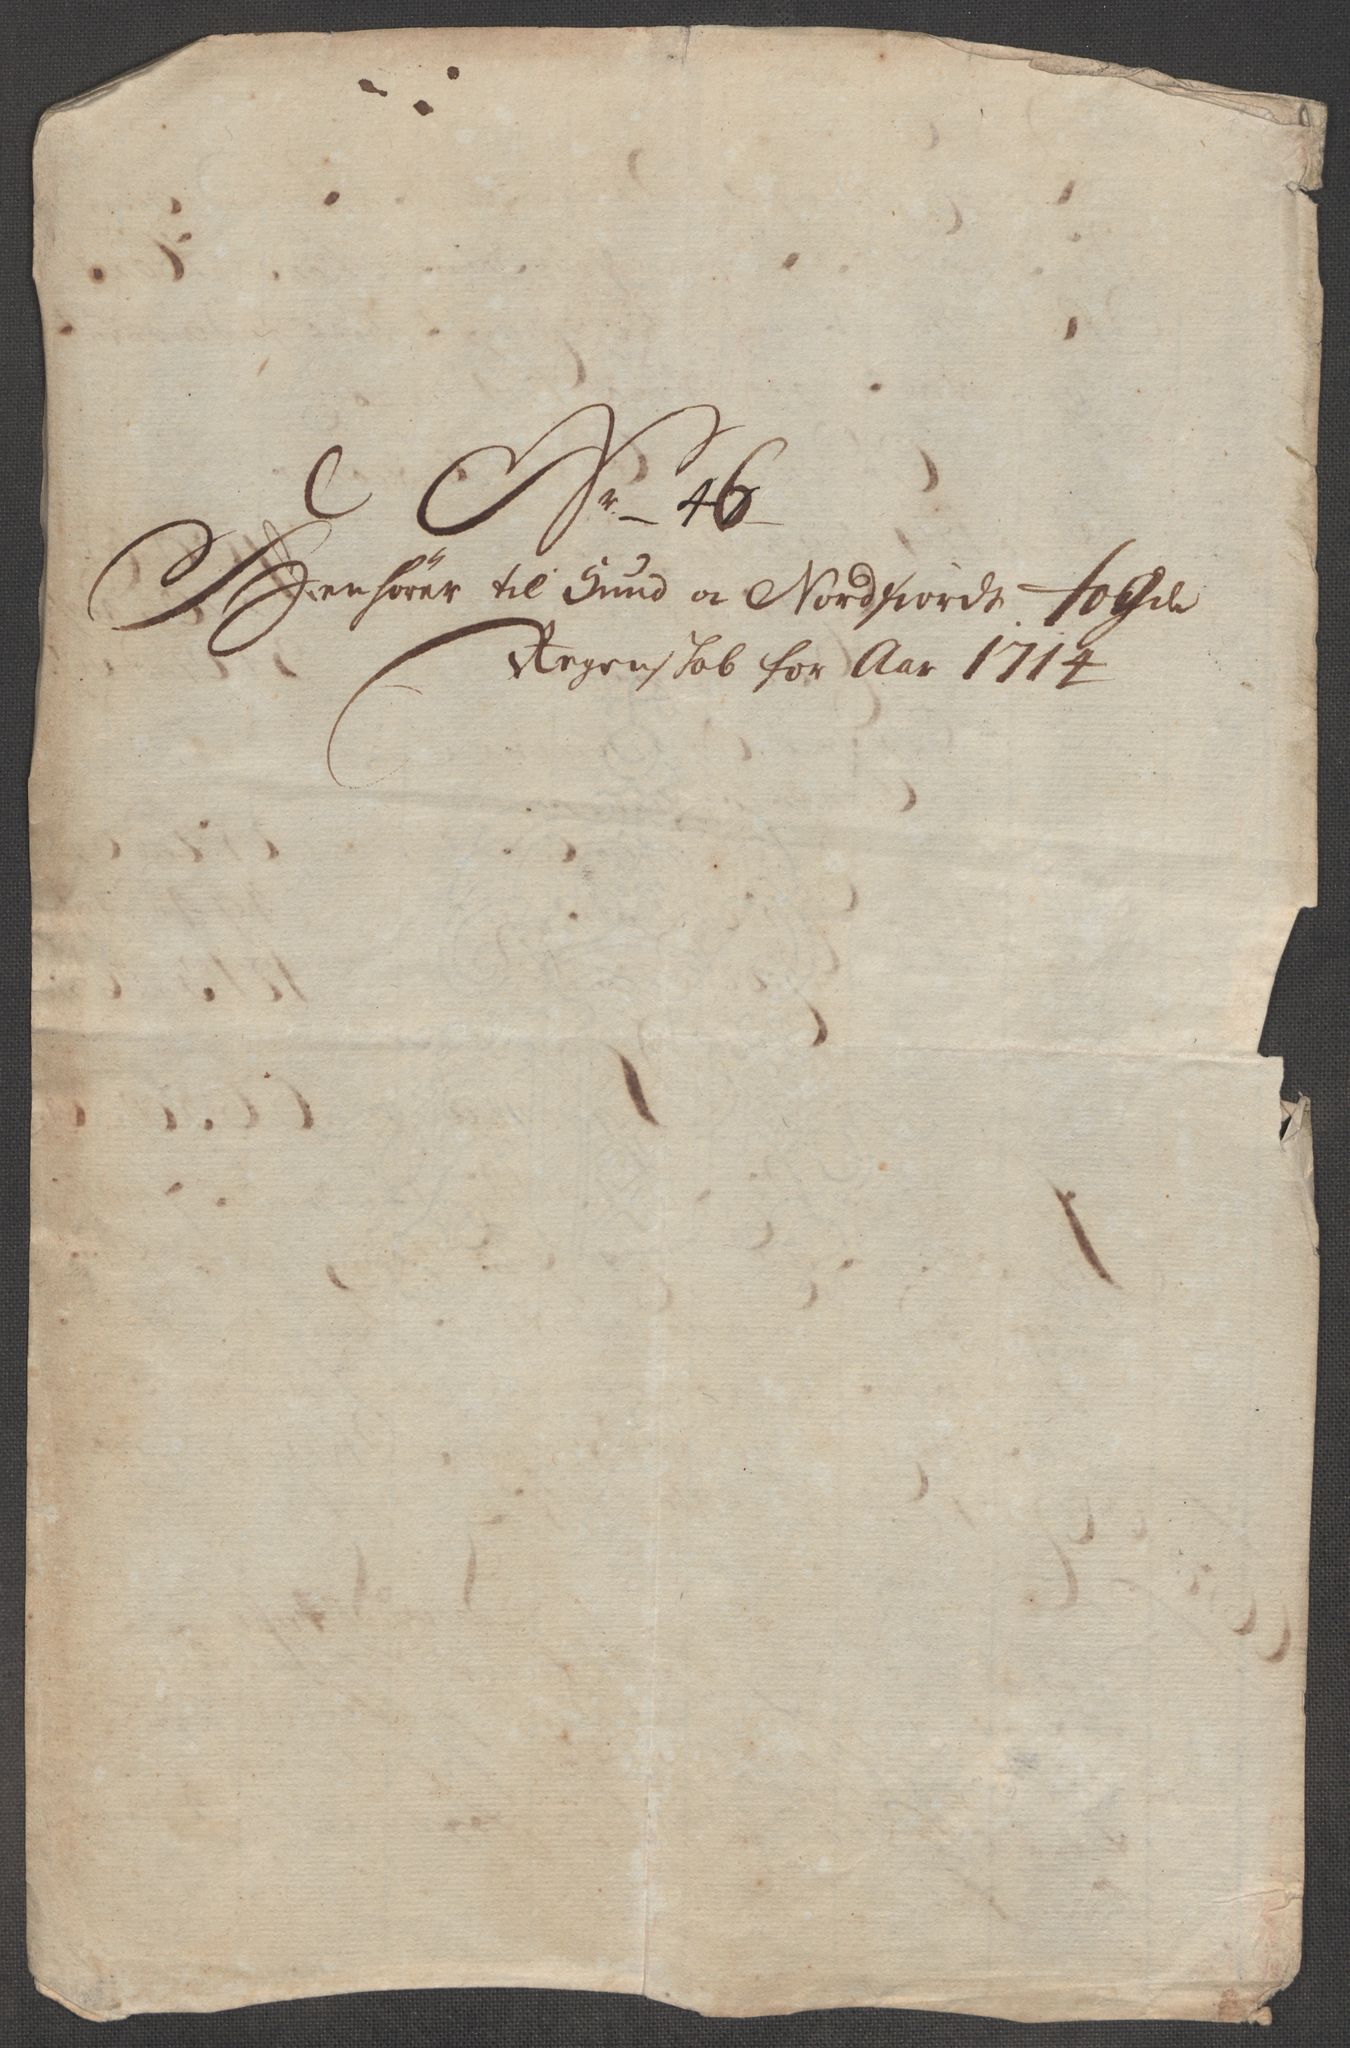 Nr. 46
Henhører til Sund og Nordfiords fogde
Regenskab for Aar 1714